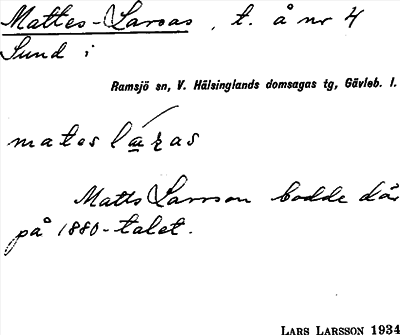 Mattes-Larsas, t. å nr 4
Sund i
Ramsjö sn, V. Hälsinglands domsagas tg, Gävleb. l.
mates láras
Matts Larsson bodde där
på 1880-talet.
LARS LARSSON 1934